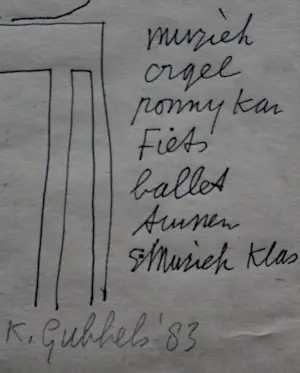 muziek
orgel
ponny kar
Fiets
ballet
turnen
Muziek klas
K. Gubbels '83